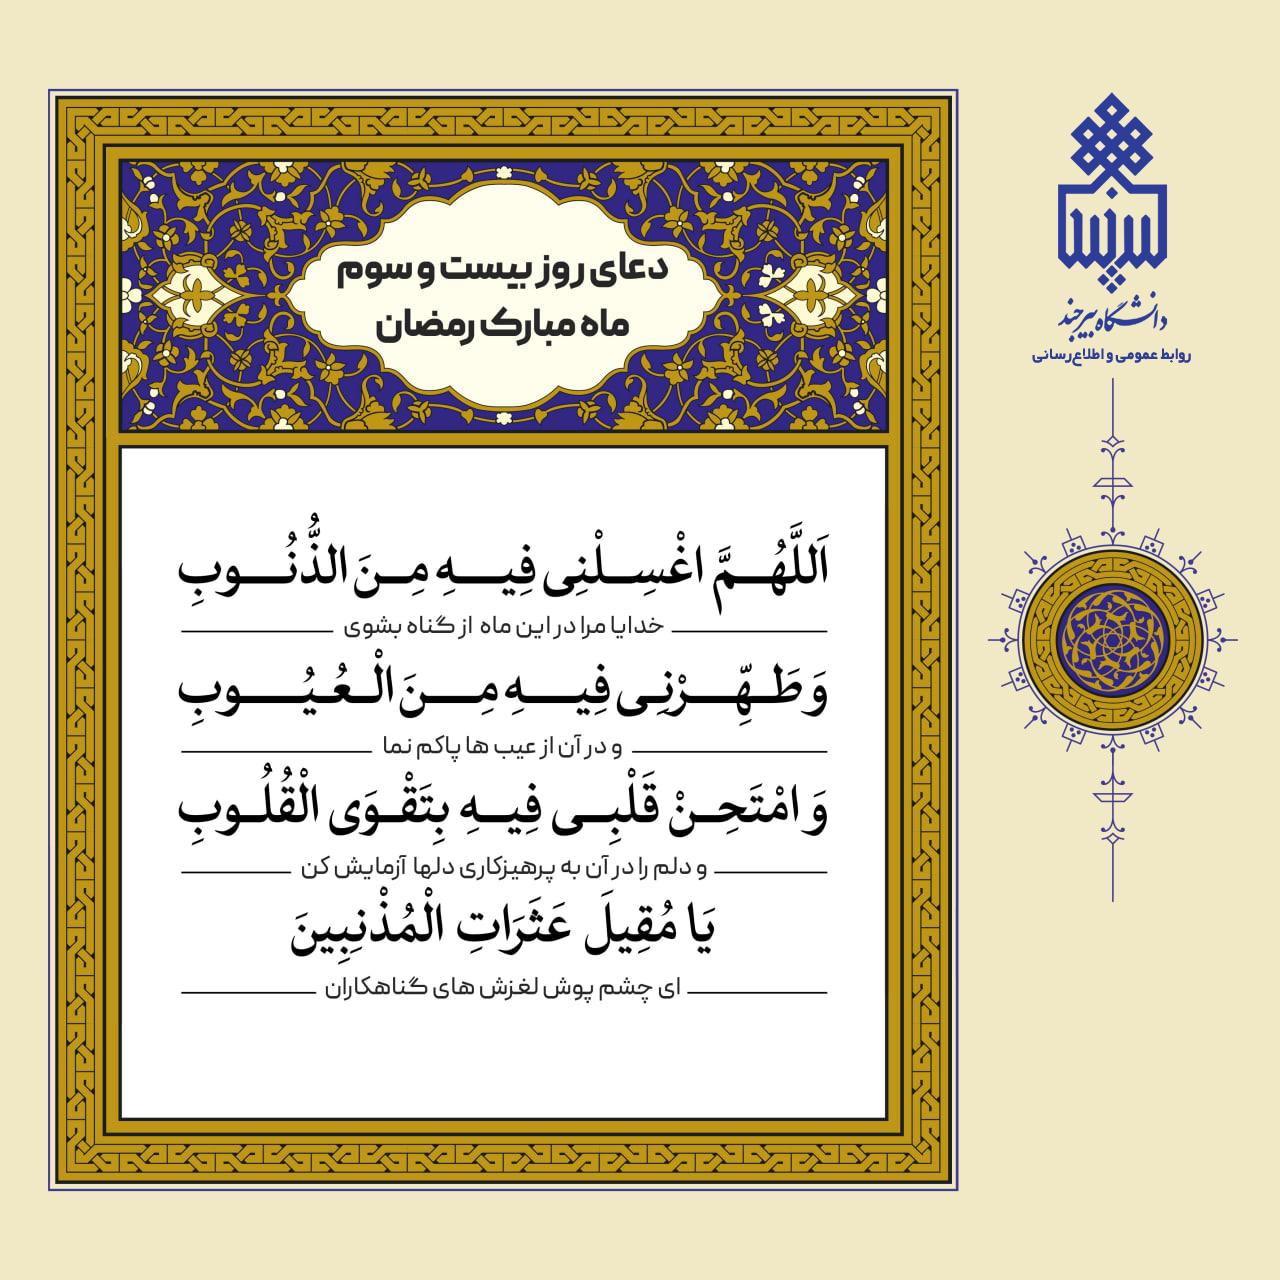 دعای روز بیست و سوم
ماه مبارک رمضان
اَللَّهُمَّ اغْسِلْنِی فِیهِ مِنَ الذُّنُوبِ
خدایا مرا در این ماه از گناه بشوی
وَ طَهِّرْنِی فِیهِ مِنَ الْعُیُوبِ
و در آن از عیب ها پاکم نما
وَ امْتَحِنْ قَلْبِی فِیهِ بِتَقْوَی الْقُلُوبِ
و دلم را در آن به پرهیزکاری دلها آزمایش کن
یَا مُقِیلَ عَثَرَاتِ الْمُذْنِبِینَ
ای چشم پوش لغزش های گناهکاران
دانشگاه بیرجند
روابط عمومی و اطلاع‌رسانی